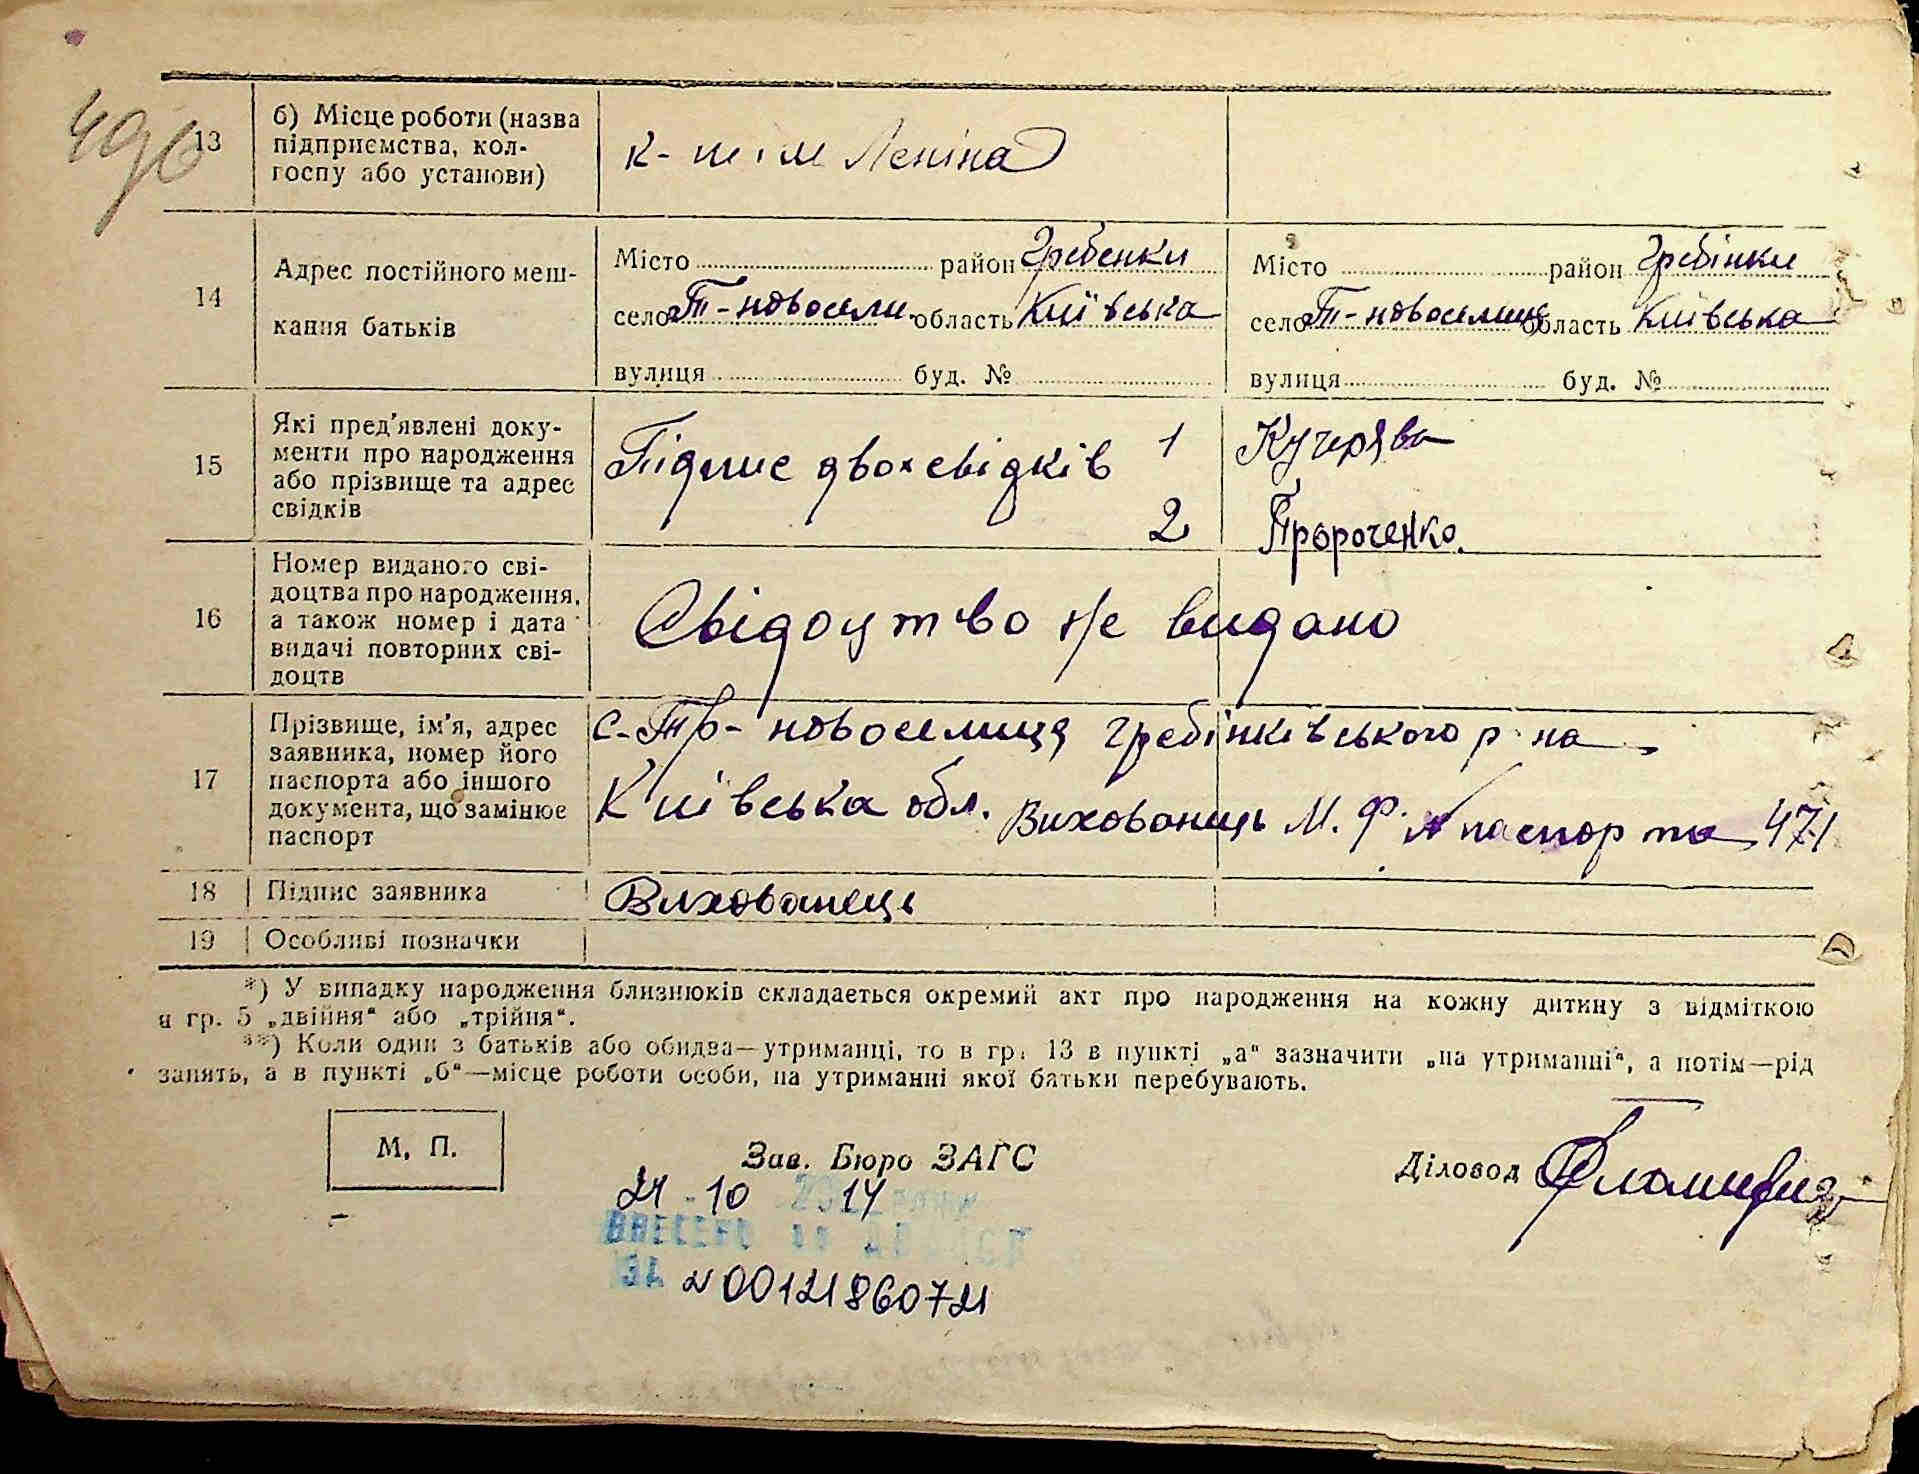 490
13
б) Місце роботи (назва
підприємства, кол-
госпу або установи)
к- ім Леніна
14
Адрес постійного меш-
кання батьків
Місто район Гребенки
село Т-новосели. область Київська
вулиця буд. №
Місто район Гребінки
село Т-новоселиця область Київська
вулиця буд. №
15
Які пред'явлені доку-
менти про народження
або прізвище та адрес
свідків
Підпис двох свідків 1 Кучерява
2 Пророченко.
16
Номер виданого сві-
доцтва про народження,
а також номер і дата
видачі повторних сві-
доцтв
Свідоцтво не видано
17
Прізвище, ім'я, адрес
заявника, номер його
паспорта або іншого
документа, що замінює
паспорт
с-Тр- новоселиця гребінківського р-на
Київська обл. Вихованець М. Ф. паспорта 471
18 Підпис заявника Вихованець
19 Особливі позначки
*) У випадку народження близнюків складається окремий акт про народження на кожну дитину з відміткою
в гр. 5 „двійня“ або „трійня“.
**) Коли один з батьків або обидва—утриманці, то в гр. 13 в пункті „а“ зазначити „на утриманні“, а потім—рід
занять, а в пункті „б“—місце роботи особи, на утриманні якої батьки перебувають.
М. П.
Зав. Бюро ЗАГС
Діловод
21 10 14
ВНЕСЕНО ДО ДРАЦСГ
ЗА № 00121860721